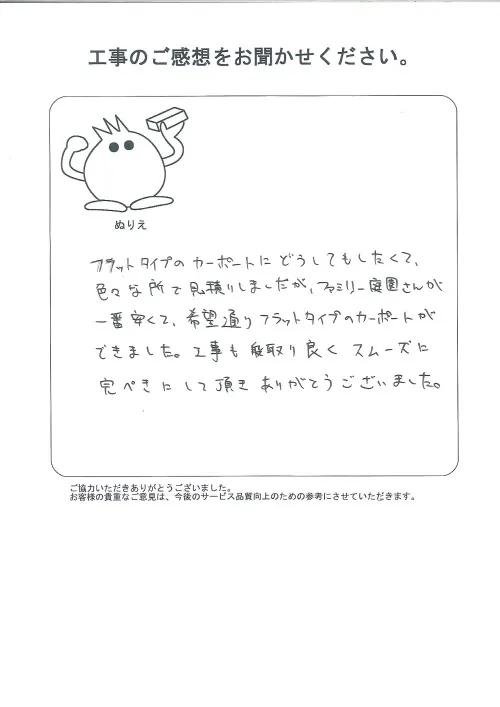 工事のご感想をお聞かせください。
ぬりえ
フラットタイプのカーポートにどうしてもしたくて、
色々な所で見積りしましたが、ファミリー庭園さんが
一番安くて、希望通りフラットタイプのカーポートが
できました。工事も段取り良くスムーズに
完ぺきにして頂きありがとうございました。
ご協力いただきありがとうございました。
お客様の貴重なご意見は、今後のサービス品質向上のための参考にさせていただきます。